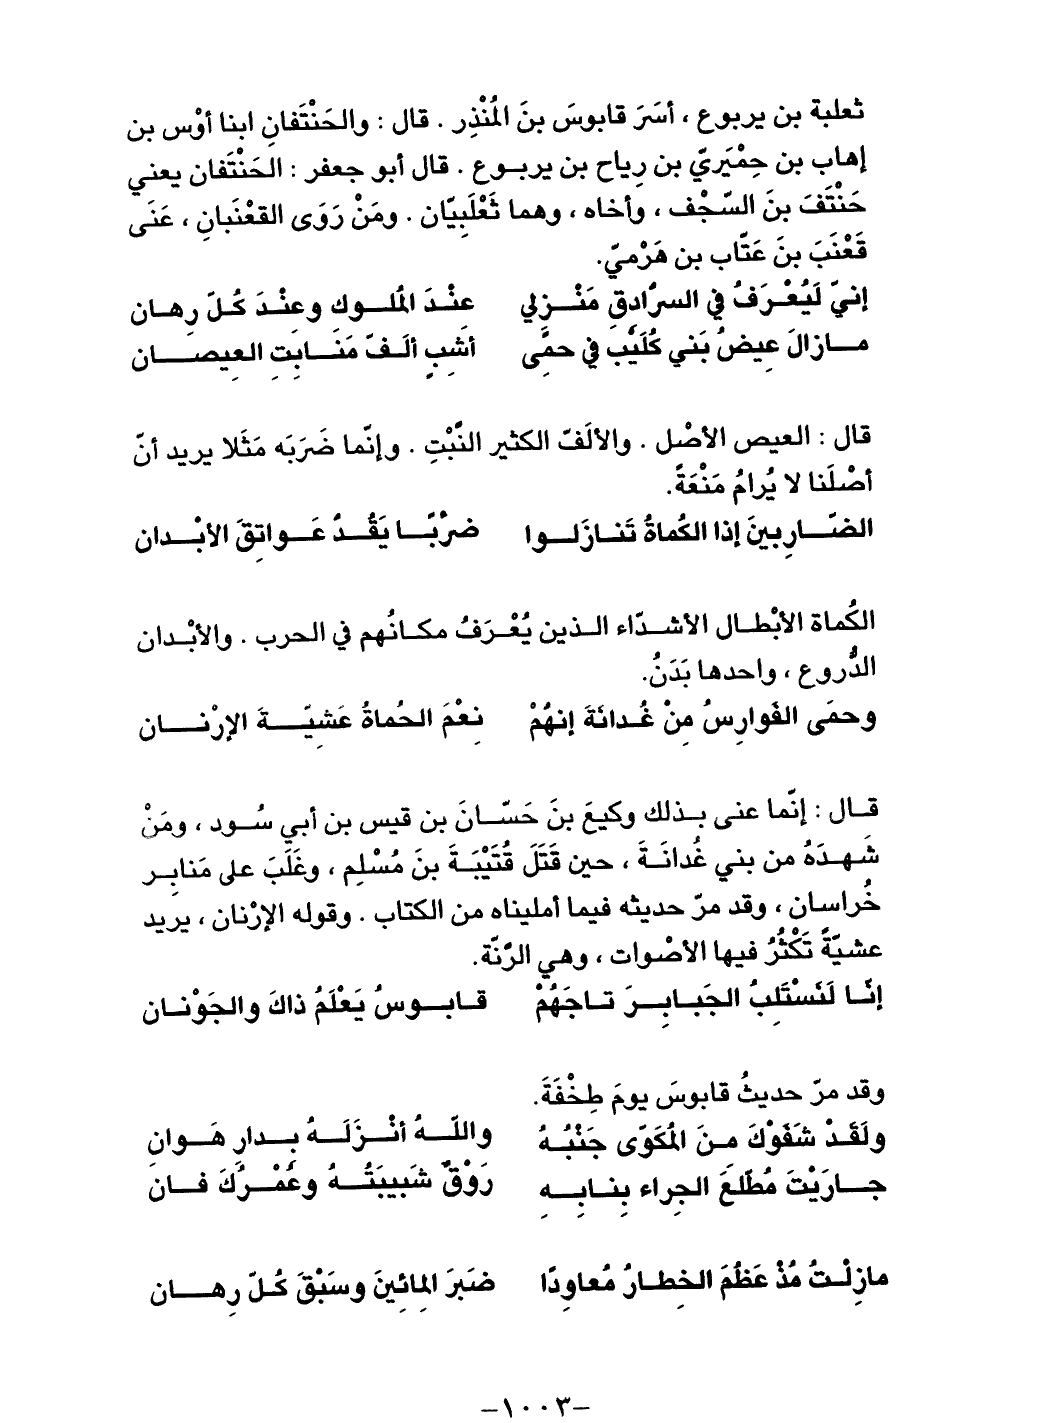 ثعلبة بن يربوع ، أسَرَ قابوسَ بنَ المُنْذِر . قال : والحَنْتَفانِ ابنا أوْس بن
إهاب بن حِمْيَريّ بن رِياح بن يربوع . قال أبو جعفر : الحَنْتَفان يعني
حَنْتَفَ بنَ السّجْف ، وأخاه ، وهما ثَعْلَبِيّان . ومَنْ رَوَى القعْنَبانِ ، عَنَى
قَعْنَبَ بنَ عَتّاب بن هَرْميّ.
إنيّ لَيُعْرَفُ في السرَّادقِ مَنْزِلي عنْدَ المُلوك وعنْدَ كُلّ رِهان
مازالَ عِيصُ بَني كُلَيْب في حمًى أشَبٍ ألَفّ مَنَابِتِ العِيصان
قال : العيص الأصْل . والألَفّ الكثير النَّبْتِ . وإنّما ضَرَبَه مَثَلا يريد أنّ
أصْلَنا لا يُرامُ مَنْعَةً.
الضّارِبينَ إذا الكُماةُ تَنازَلوا ضرْبًا يَقُدُّ عَواتِقَ الأبْدان
الكُماة الأبْطال الأشدّاء الذين يُعْرَفُ مكانُهم في الحرب . والأبْدان
الدُّروع ، واحدها بَدَنُ.
وحمَى الفَوارِسُ مِنْ غُدانَةَ إنهُمْ نِعْمَ الحُماةُ عَشِيّةَ الإرْنان
قال : إنّما عنى بذلك وكيعَ بنَ حَسّانَ بن قيس بن أبي سُود ، ومَنْ
شَهدَهُ من بني غُدانَةَ ، حين قَتَلَ قُتَيْبَةَ بنَ مُسْلِم ، وغَلَبَ على مَنابِر
خُراسان ، وقد مرّ حديثه فيما أمليناه من الكتاب . وقوله الإرْنان ، يريد
عشيّةً تَكْثُرُ فيها الأصْوات ، وهي الرَّنّة.
إنّا لَنَسْتَلِبُ الجَبابِرَ تاجَهُمْ قابوسُ يَعْلَمُ ذاكَ والجَوْنان
وقد مرّ حديثُ قابوسَ يومَ طِخْفَةَ.
ولَقَدْ شَفَوْكَ منَ المُكَوّى جَنْبُهُ واللّهُ أنْزَلَهُ بدارِ هَوانِ
جارَيْتَ مُطّلَعَ الجِراء بِنابِهِ رَوْقٌ شَبيبَتُهُ وعُمْرُكَ فانَ
مازِلْتُ مُذْ عَظُمَ الخِطارُ مُعاوِدًا ضبَرَ المِائِينَ وسَبْقَ كُلّ رِهان
-١٠٠٣-